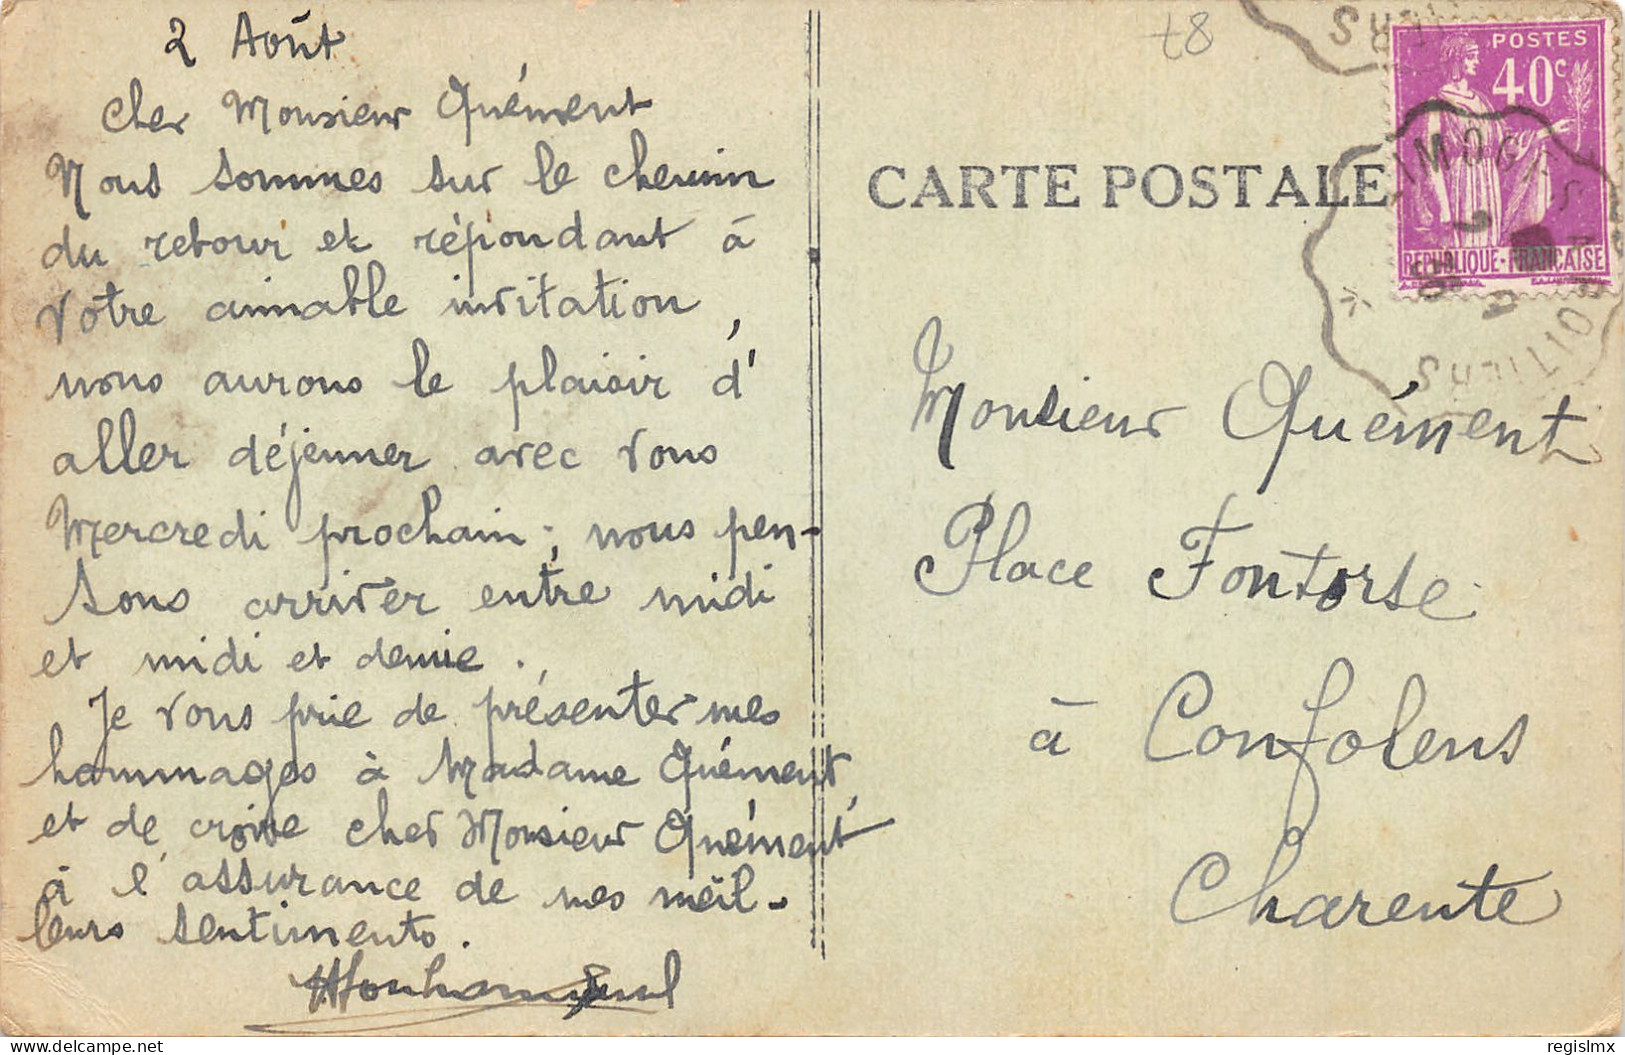 2 Août
Cher Monsieur Quément
Nous sommes sur le chemin
du retour et répondant à
votre aimable invitation,
nous aurons le plaisir d'
aller déjeuner avec vous
Mercredi prochain ; nous pen-
sons arriver entre midi
et midi et demie.
Je vous prie de présenter mes
hommages à Madame Quément,
et de croire cher Monsieur Quément
à l'assurance de mes meil-
leurs sentiments.
t8
CARTE POSTALE
POSTES
40c
REPUBLIQUE-FRANÇAISE
LIMOGES
POITIERS
Monsieur Quément
Place Fontorse
à Confolens
Charente
www.delcampe.net
regislmx